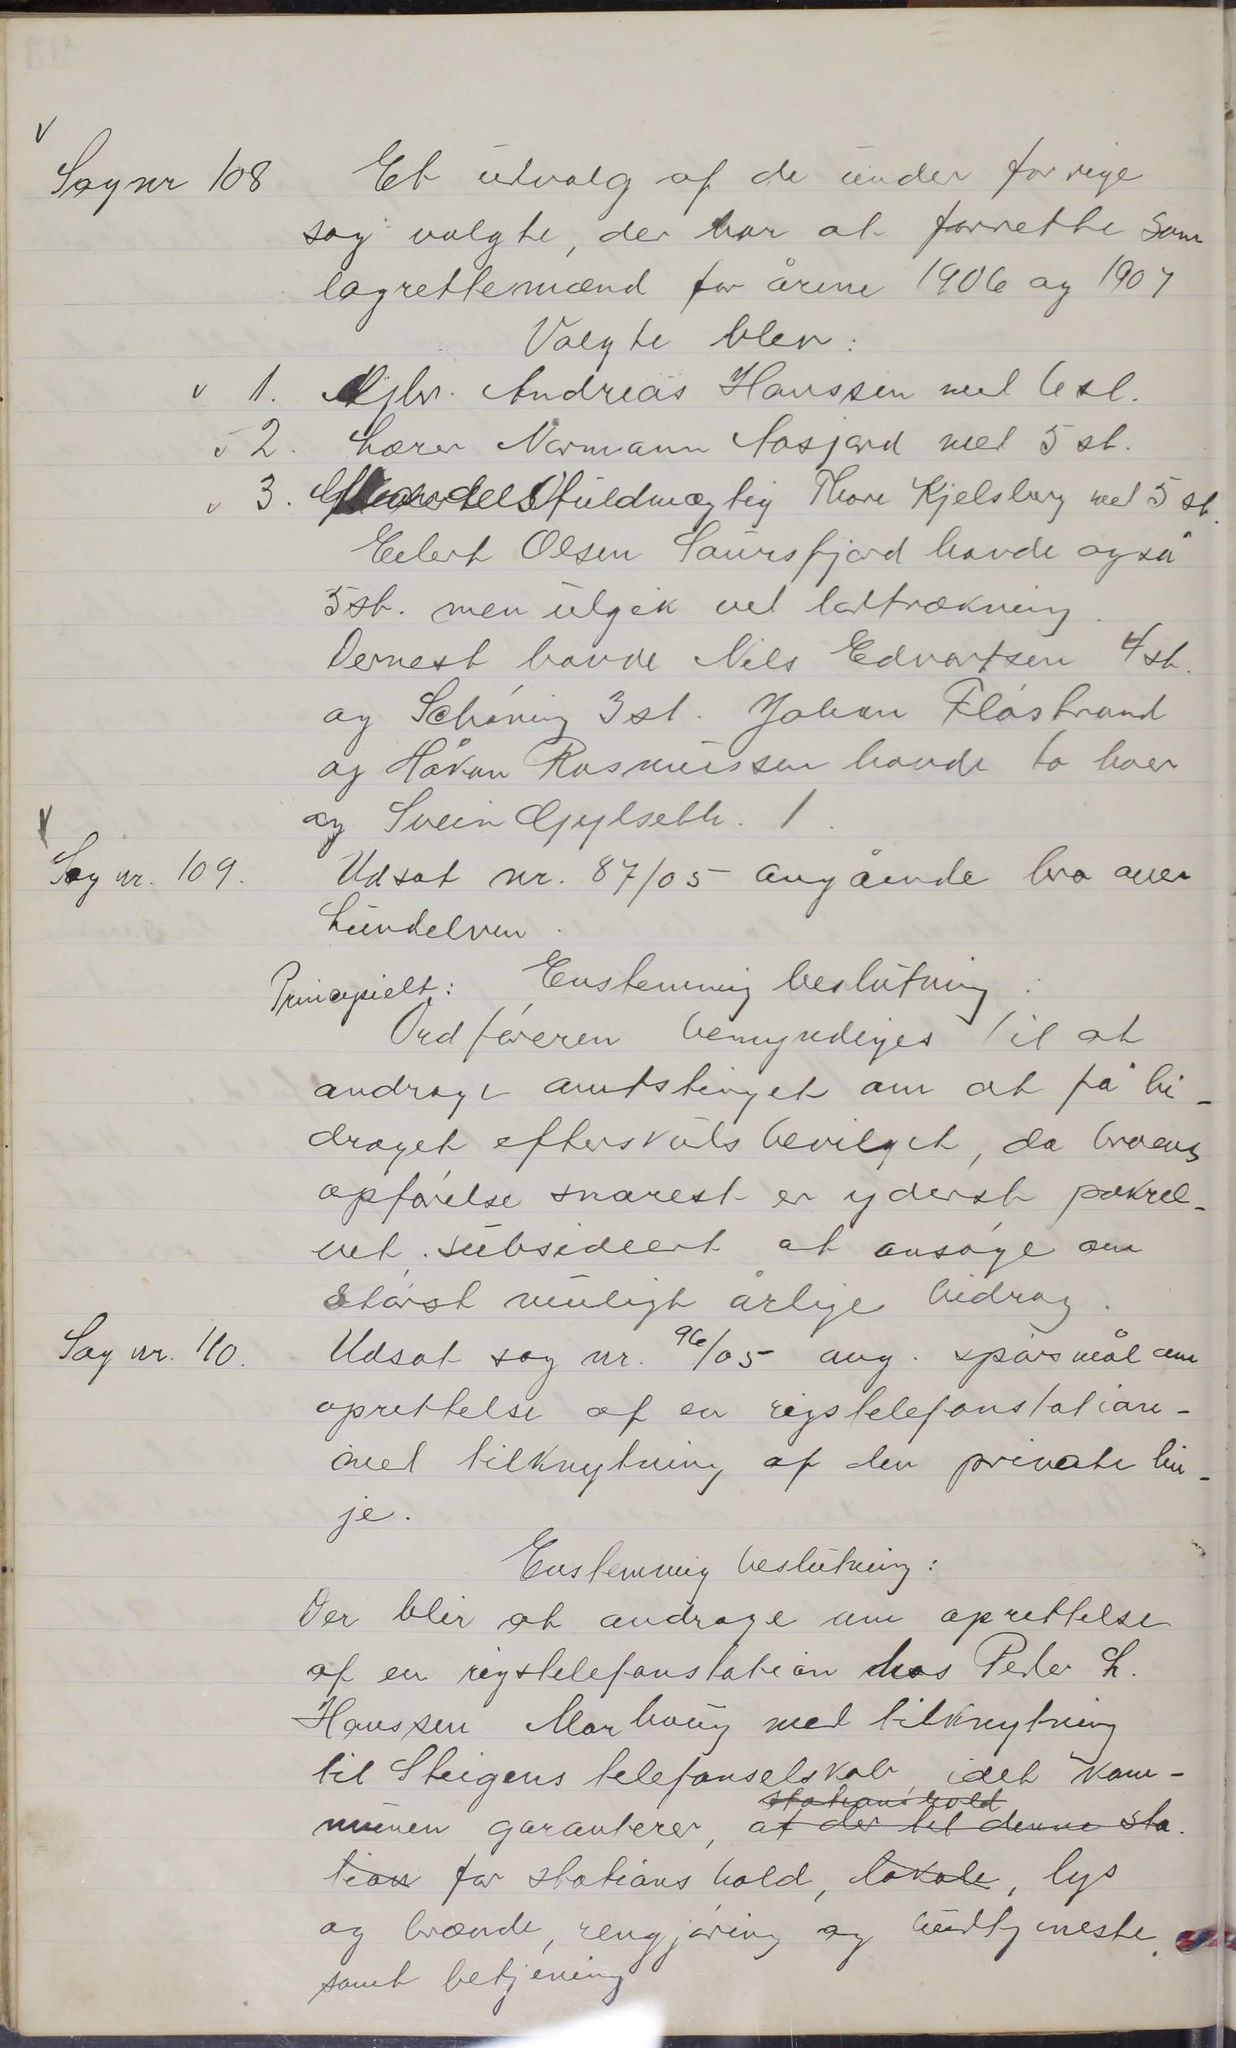 Sag nr 108 Et udvalg af de under forrige
sag valgte, der har at forrette som
lagrettemænd for årene 1906 og 1907
Valgte blev:
v 1. Kjbr. Andreas Hanssen med 6 st.
v 2. Lærer Normann Aasjord med 5 st.
v 3. Handelsfuldmægtig Thore Kjelsberg med 5 st.
Eilert Olsen Saursfjord havde også
5 st. men udgik ved lodtrækning.
Dernest havde Nils Edvartsen 4 st.
og Schøning 3 st. Johan Flåstrand
og Håkon Rasmussen havde to hver
og Svein Gylseth. 1.
Sag nr. 109. Udsat nr. 87/05 angående bro over
Lundelven.
Principielt: Enstemmig beslutning:
Ordføreren bemyndiges til at
andrage amtstinget om at få bi-
draget efterskuds bevilget, da broens
opførelse snarest er yderst påkræ-
vet, subsidiert at ansøge om
størst muligt årlige bidrag.
Sag nr. 110. Udsat sag nr. 96/05 ang. spørsmål om
oprettelse af en rigstelefonstation-
med tilknytning af den private lin-
je.
Enstemmig beslutning:
Der blir at andrage om oprettelse
af en rigstelefonstation hos Peder L.
Hanssen Marhaug med tilknytning
til Steigens telefonselskab, idet kom-
stationshold
munen garanterer, at der til denne sta-
tion for stationshold, lokale, lys
og brænde, rengjøring og budtjeneste,
samt betjening